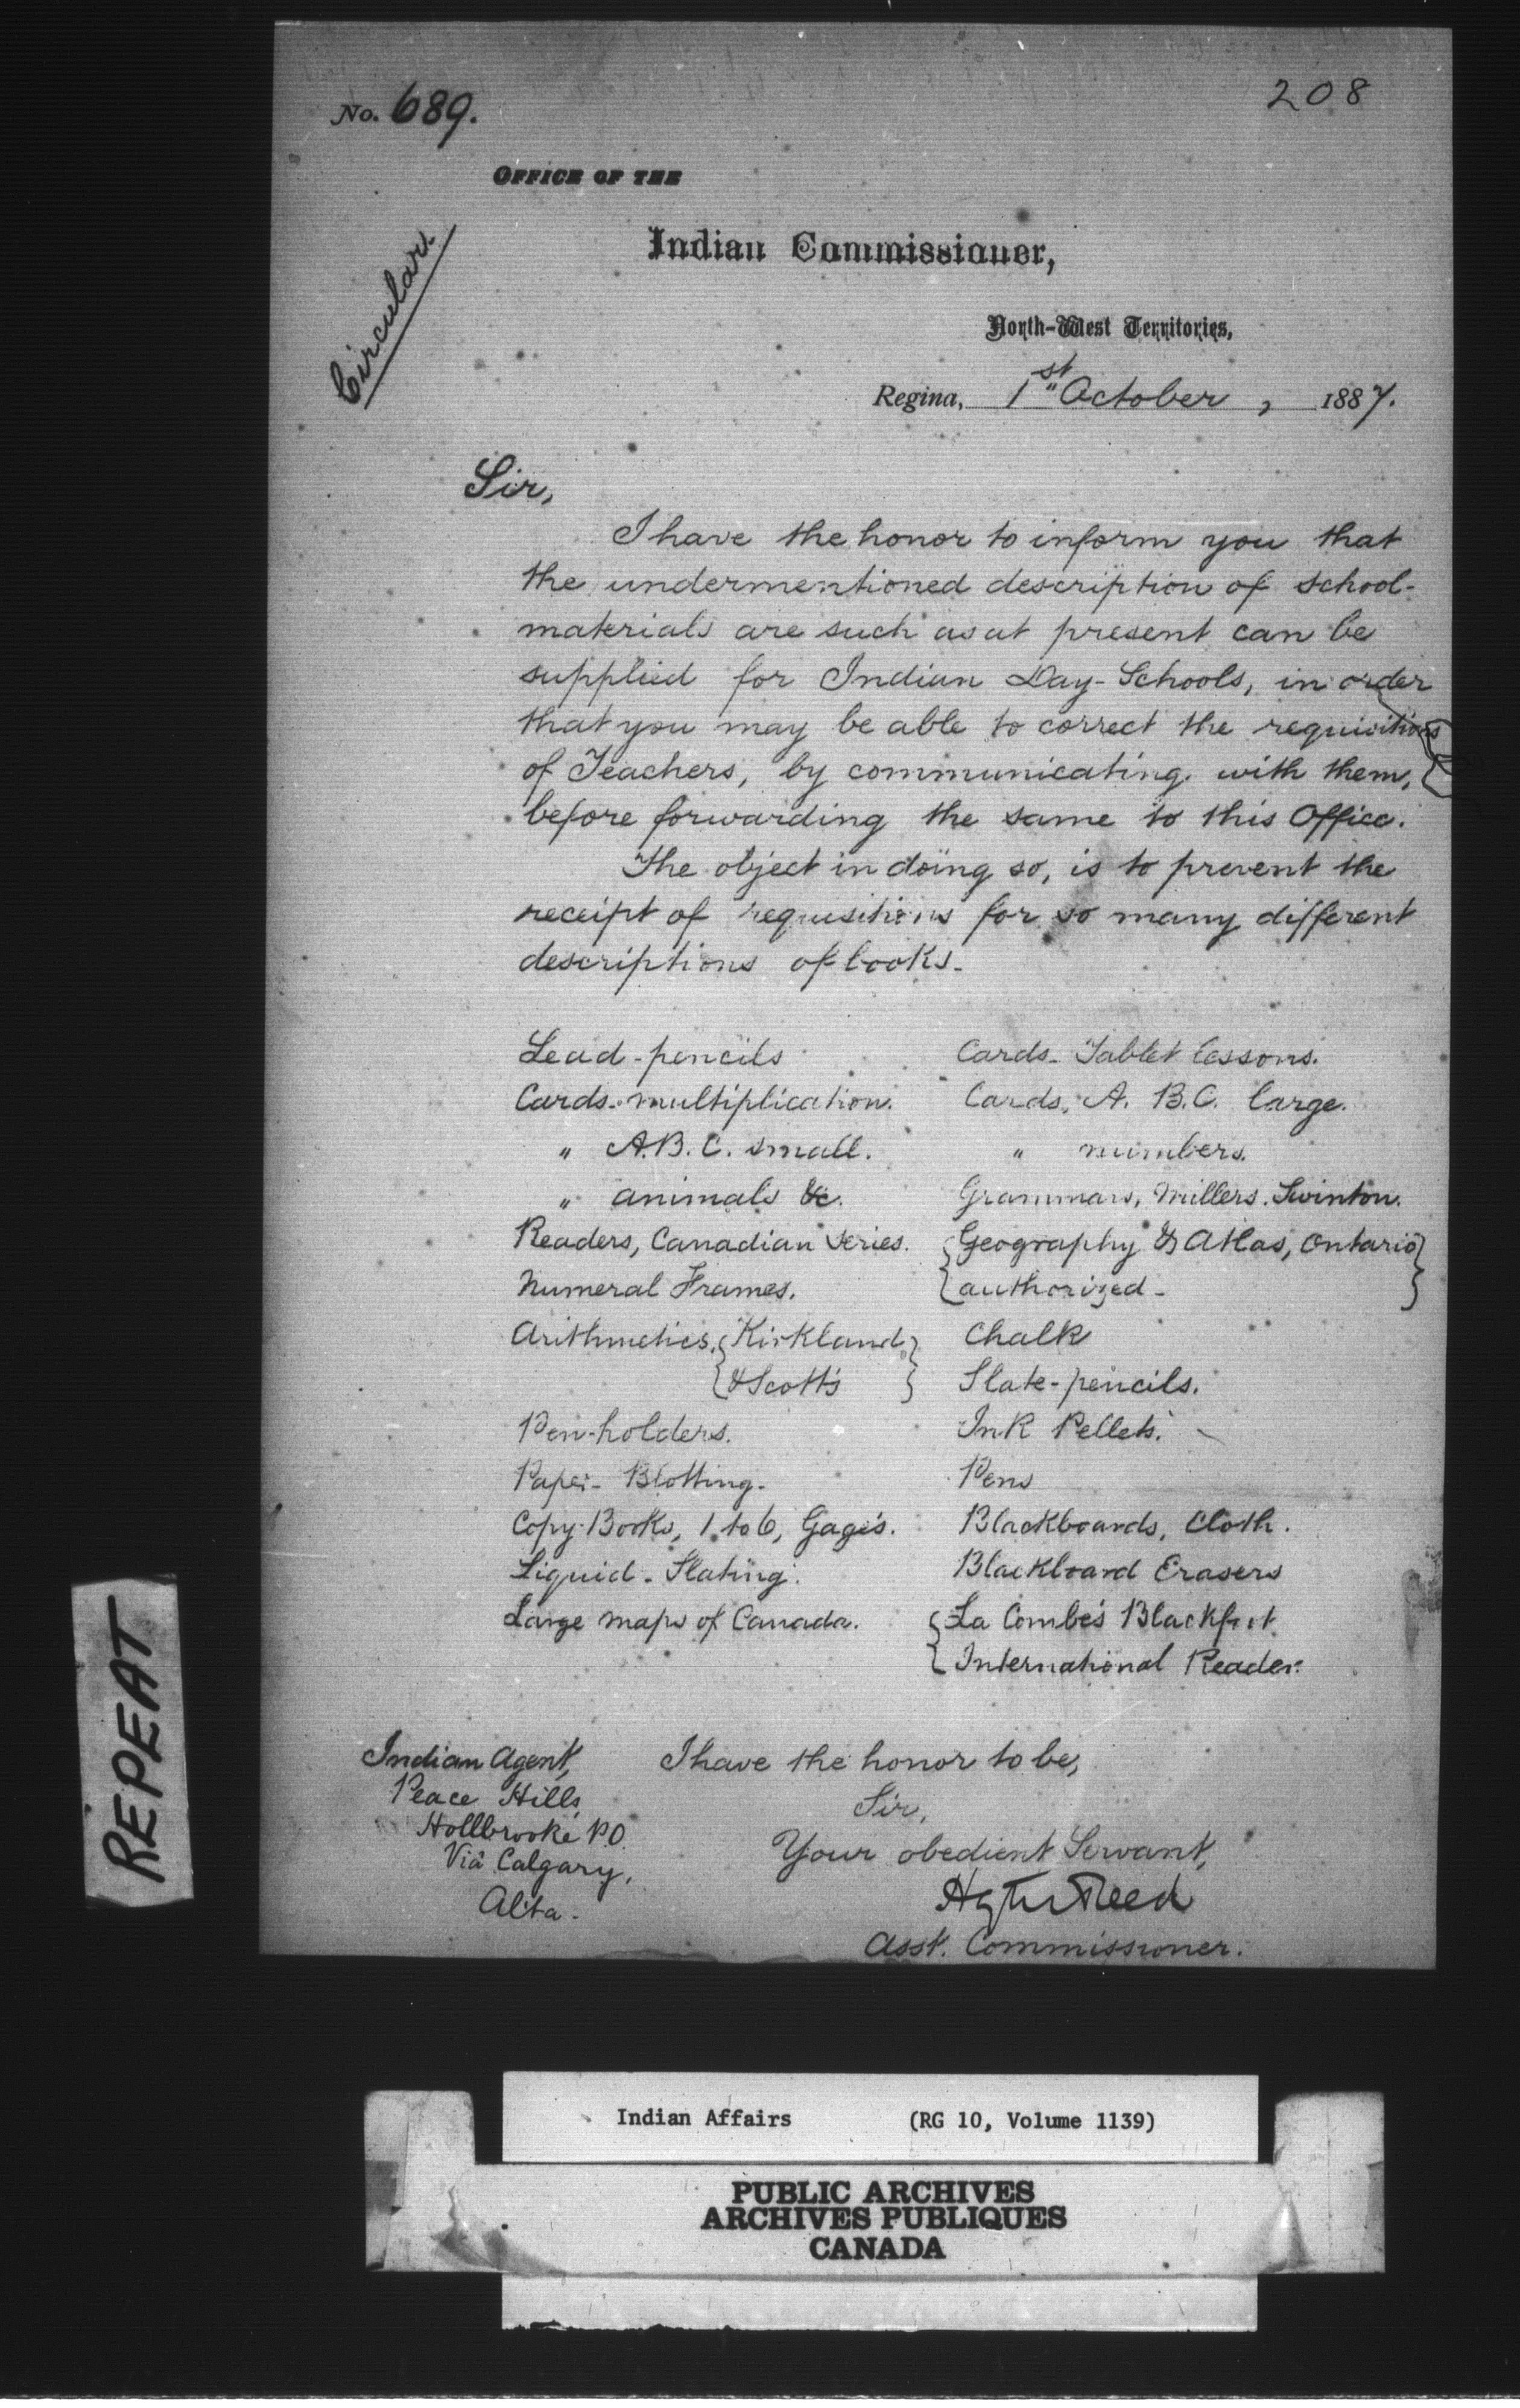 No. 689.
208
OFFICE OF THE
Indian Commissioner,
Circular
North-West Territories,
Regina, 1st October, 1887.
Sir,
I have the honor to inform you that
the undermentioned description of school-
materials are such as at present can be
supplied for Indian Day-Schools, in order
that you may be able to correct the requisitions
of Teachers, by communicating with them,
before forwarding the same to this Office.
The object in doing so, is to prevent the
receipt of requisitions for so many different
descriptions of books.
Lead-pencils
Cards. multiplication.
" A.B.C. small.
" animals &c.
Readers, Canadian Series.
Numeral Frames.
Arithmetics, { Kirkland }
{ & Scott's }
Pen-holders.
Paper- Blotting.
Copy-Books, 1 to 6, Gage's.
Liquid-Slating.
Large maps of Canada.
Cards- Tablet lessons.
Cards, A. B.C. large.
" numbers.
Grammars, Millers. Swinton.
{ Geography & Atlas, Ontario }
{ authorized- }
Chalk
Slate-pencils.
Ink Pellets.
Pens
Blackboards, Cloth.
Blackboard Erasers
{ La Combe's Blackfoot
{ International Reader.
Indian Agent,
Peace Hills,
Hollbrooke P.O.
Via Calgary,
Alta.
I have the honor to be,
Sir,
Your obedient Servant,
Hayter Reed
Asst. Commissioner.
REPEAT
Indian Affairs (RG 10, Volume 1139)
PUBLIC ARCHIVES
ARCHIVES PUBLIQUES
CANADA